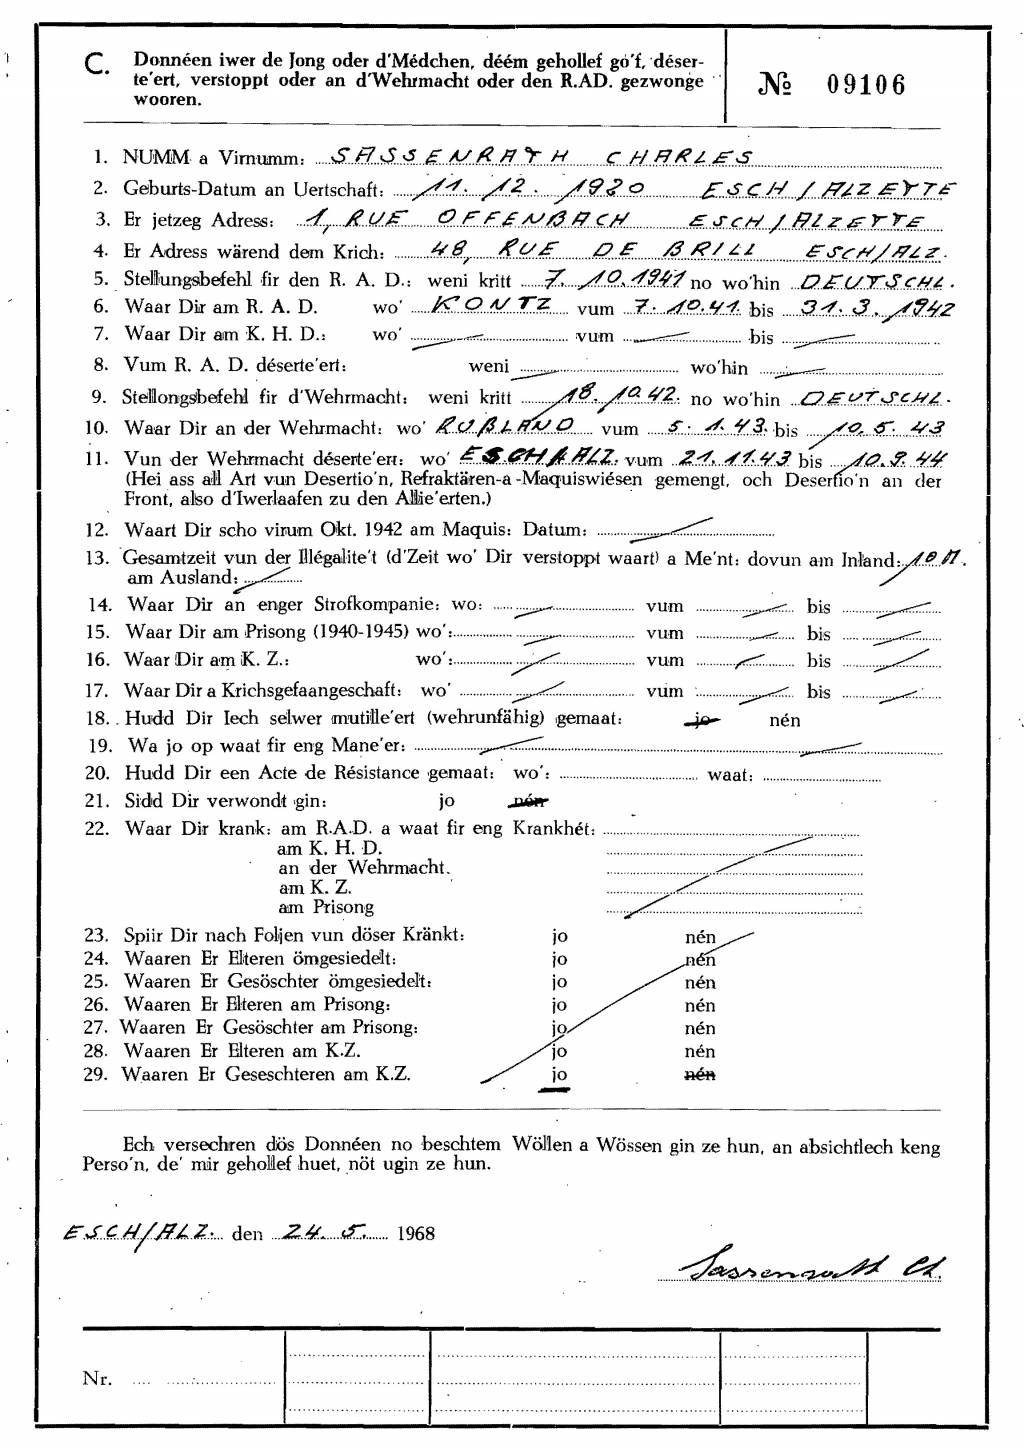 C. Donnéen iwer de Jong oder d'Médchen, déém gehollef go'f, déser-
te'ert, verstoppt oder an d'Wehrmacht oder den R.AD. gezwonge
wooren.
№ 09106
1. NUMM a Virnumm: SASSENRATH CHARLES
2. Geburts-Datum an Uertschaft: 11. 12. 1920 ESCH/ALZETTE
3. Er jetzeg Adress: 1, RUE OFFENBACH ESCH/ALZETTE
4. Er Adress wärend dem Krich: 48, RUE DE BRILL ESCH/ALZ.
5. Stellungsbefehl fir den R. A. D.: weni kritt 7. 10. 1941 no wo'hin DEUTSCHL.
6. Waar Dir am R. A. D. wo' KONTZ vum 7. 10. 41. bis 31. 3. 1942
7. Waar Dir am K. H. D.: wo' vum bis
8. Vum R. A. D. déserte'ert: weni wo'hin
9. Stellongsbefehl fir d'Wehrmacht: weni kritt 18. 10. 42. no wo'hin DEUTSCHL.
10. Waar Dir an der Wehrmacht: wo' RUßLAND vum 5. 1. 43. bis 10. 5. 43
11. Vun der Wehrmacht déserte'ert: wo' ESCH/ALZ. vum 21. 11. 43 bis 10. 9. 44
(Hei ass all Art vun Desertio'n, Refraktären-a-Maquiswiésen gemengt, och Desertio'n an der
Front, also d'Iwerlaafen zu den Allie'erten.)
12. Waart Dir scho virum Okt. 1942 am Maquis: Datum:
13. Gesamtzeit vun der Illégalite't (d'Zeit wo' Dir verstoppt waart) a Me'nt: dovun am Inland: 10 M.
am Ausland:
14. Waar Dir an enger Strofkompanie: wo: vum bis
15. Waar Dir am Prisong (1940-1945) wo': vum bis
16. Waar Dir am K. Z.: wo': vum bis
17. Waar Dir a Krichsgefaangeschaft: wo' vum bis
18. Hudd Dir Iech selwer mutille'ert (wehrunfähig) gemaat: jo nén
19. Wa jo op waat fir eng Mane'er:
20. Hudd Dir een Acte de Résistance gemaat: wo': waat:
21. Sidd Dir verwondt gin: jo nén
22. Waar Dir krank: am R.A.D. a waat fir eng Krankhét:
am K. H. D.
an der Wehrmacht.
am K. Z.
am Prisong
23. Spiir Dir nach Foljen vun döser Kränkt: jo nén
24. Waaren Er Elteren ömgesiedelt: jo nén
25. Waaren Er Gesöschter ömgesiedelt: jo nén
26. Waaren Er Elteren am Prisong: jo nén
27. Waaren Er Gesöschter am Prisong: jo nén
28. Waaren Er Elteren am K.Z. jo nén
29. Waaren Er Geseschteren am K.Z. jo nén
Ech versechren dös Donnéen no beschtem Wöllen a Wössen gin ze hun, an absichtlech keng
Perso'n, de' mir gehollef huet, nöt ugin ze hun.
ESCH/ALZ. den 24. 5. 1968
Sassenrath Ch.
Nr.